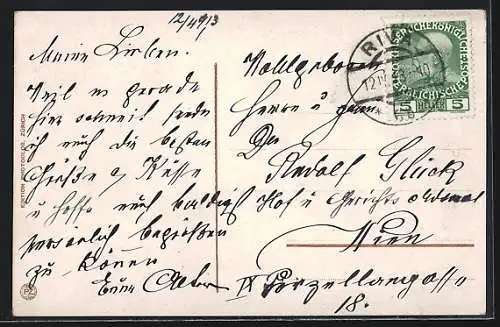 12/4 1913
Meine Lieben.
Weil es gerade
hier schneit sende
ich euch die besten
Grüße u Küsse
u hoffe euch baldigst
persönlich begrüßen
zu können
Euer
Wohlgeboren
Herrn u Frau
Dr Rudolf Glück
Hof u Gerichts Advocat
Wien
IX Porzellangasse
18.
RIVA
KAISERLICHE KÖNIGLICHE
ÖSTERREICHISCHE POST
5 HELLER 5
EDITION PHOTOGLOB, ZÜRICH
PZ